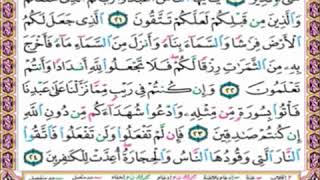 وَٱلَّذِينَ مِن قَبْلِكُمْ لَعَلَّكُمْ تَتَّقُونَ ٢١ ٱلَّذِى جَعَلَ لَكُمُ
ٱلْأَرْضَ فِرَٰشًا وَٱلسَّمَآءَ بِنَآءً وَأَنزَلَ مِنَ ٱلسَّمَآءِ مَآءً فَأَخْرَجَ
بِهِۦ مِنَ ٱلثَّمَرَٰتِ رِزْقًا لَّكُمْ فَلَا تَجْعَلُوا۟ لِلَّهِ أَندَادًا وَأَنتُمْ
تَعْلَمُونَ ٢٢ وَإِن كُنتُمْ فِى رَيْبٍ مِّمَّا نَزَّلْنَا عَلَىٰ عَبْدِنَا
فَأْتُوا۟ بِسُورَةٍ مِّن مِّثْلِهِۦ وَٱدْعُوا۟ شُهَدَآءَكُم مِّن دُونِ ٱللَّهِ
إِن كُنتُمْ صَٰدِقِينَ ٢٣ فَإِن لَّمْ تَفْعَلُوا۟ وَلَن تَفْعَلُوا۟ فَٱتَّقُوا۟
ٱلنَّارَ ٱلَّتِى وَقُودُهَا ٱلنَّاسُ وَٱلْحِجَارَةُ أُعِدَّتْ لِلْكَٰفِرِينَ ٢٤